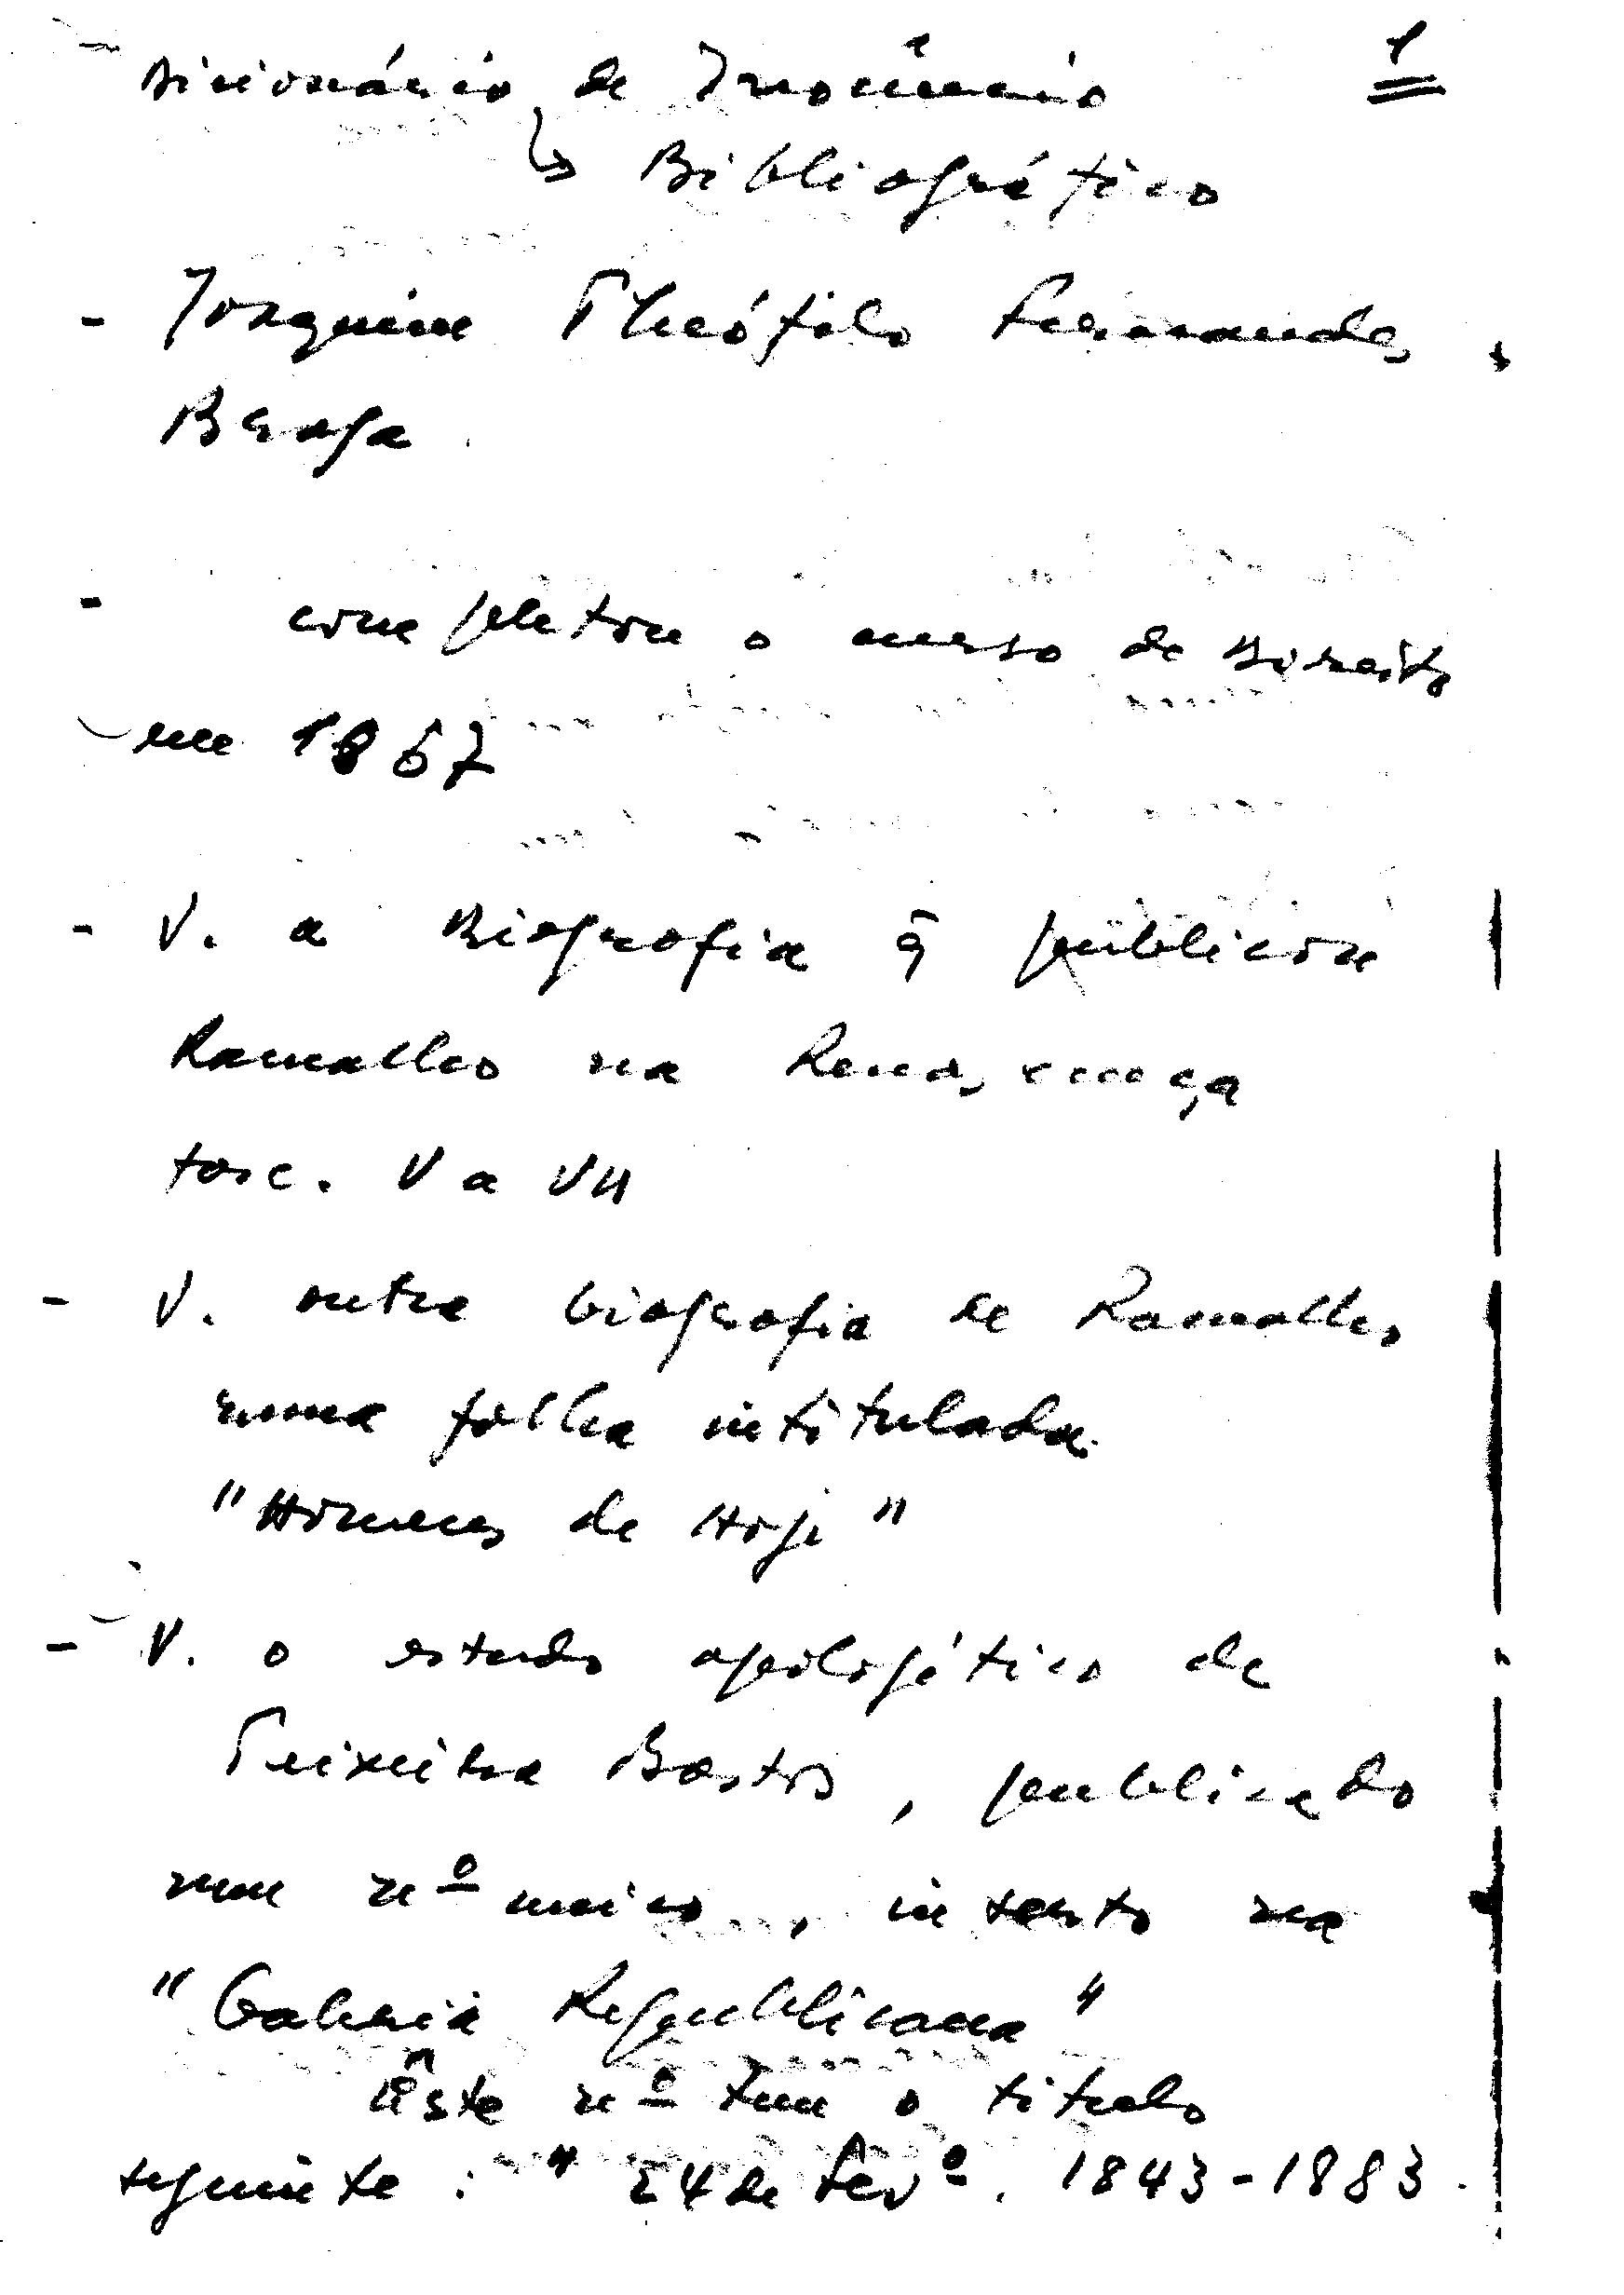 Dicionário de Inocêncio 1
↳ Bibliográfico
- Joaquim Theófilo Fernandes
Braga
- completou o curso de Direito
em 1867
- V. a Biografia q̃ publicou
Ramalho na Renascença
fasc. V a VII
- V. outra biografia de Ramalho
numa fôlha intitulada
"Homens de Hoje"
- V. o estudo apologético de
Teixeira Bastos, publicado
num nº único, inserto na
"Galeria Republicana"
Êste nº tem o titulo
seguinte : " 24 de Fevº. 1843-1883.